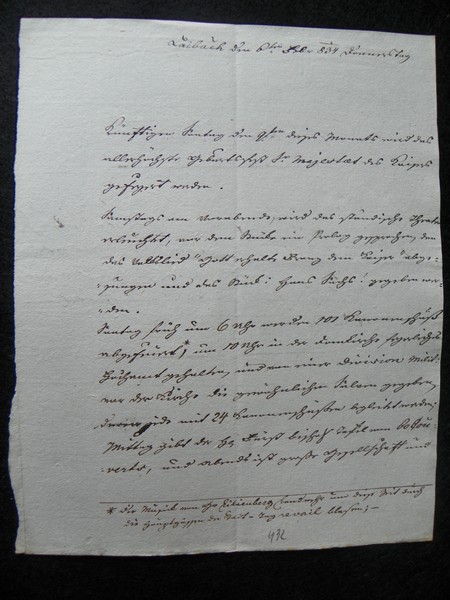 Laibach den 6ten Feber 834 Donnerstag
Künftigen Sontag den 9ten dieses Monats wird das
allerhöchste Geburtsfest Sr Majestaet des Kaisers
gefeyert werden.
Samstags am Vorabende, wird das ständische Theater
erleuchtet, vor dem Stücke ein Prolog gesprochen, dann
das Volkslied "Gott erhalte Franz den Kaiser" abge-
sungen und das Stück: Hans Sachs: gegeben wer-
den.
Sontag früh um 6 Uhr werden 101 Kanonenschüße
abgefeuert,* um 10 Uhr in der Domkirche feyerliches
Hochamt gehalten, und von einer Division Militär
vor der Kirche die gewöhnlichen Salven gegeben,
deren jede mit 24 Kanonenschüßen begleitet werden;
Mittag gibt der H Fürst Bischof Tafel von 60 Cou-
verts, und Abends ist große Gesellschaft und
* Die Musick von Landwehr um diese Zeit durch
die Hauptgassen der Stadt Tag reveil blasen;—
432